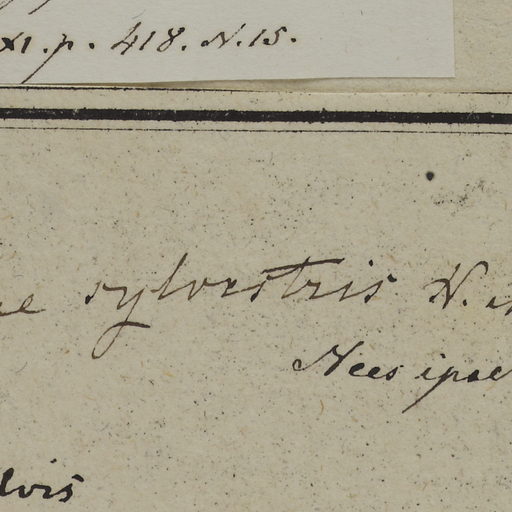 XI. p. 418. N. 15.
sylvestris N.
Nees ipse